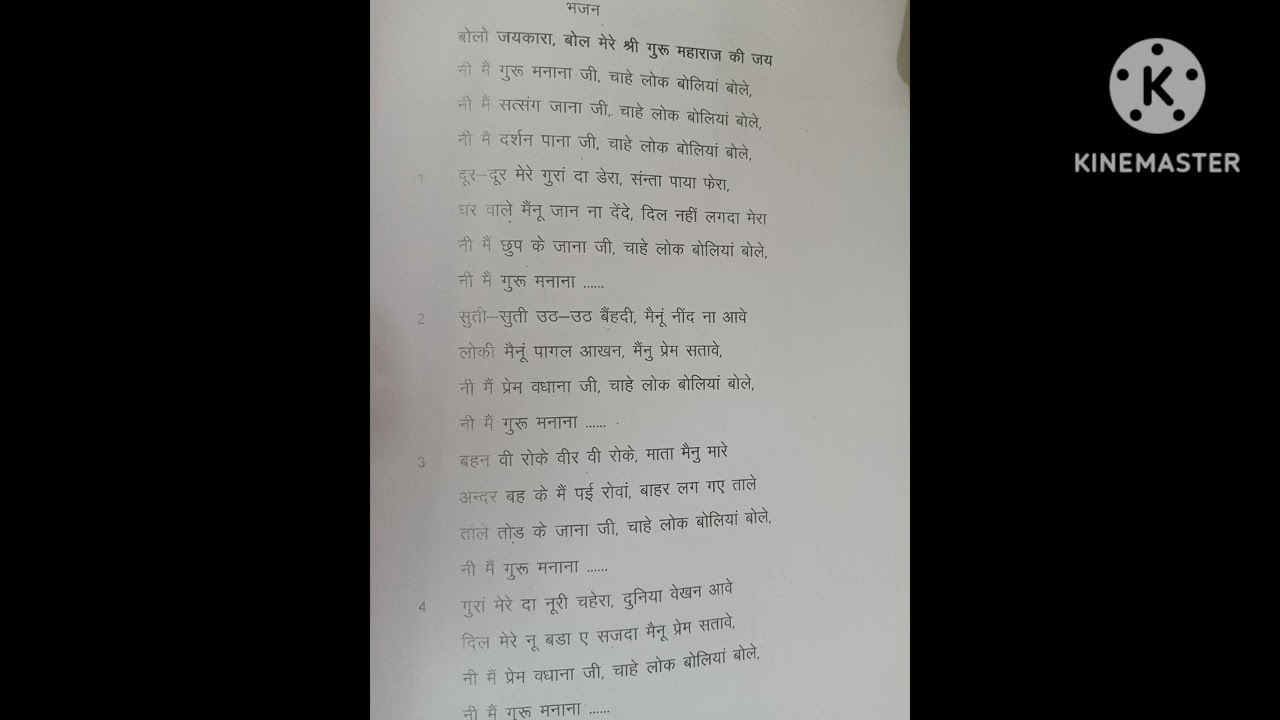 भजन
बोलो जयकारा, बोल मेरे श्री गुरू महाराज की जय
नी मैं गुरू मनाना जी, चाहे लोक बोलियां बोले,
नी मैं सत्संग जाना जी, चाहे लोक बोलियां बोले,
नी मै दर्शन पाना जी, चाहे लोक बोलियां बोले,
1 दूर–दूर मेरे गुरां दा डेरा, संन्ता पाया फेरा,
घर वाले मैंनू जान ना देंदे, दिल नहीं लगदा मेरा
नी मैं छुप के जाना जी, चाहे लोक बोलियां बोले,
नी मैं गुरू मनाना ......
2 सुती–सुती उठ–उठ बैंहदी, मैनूं नींद ना आवे
लोकी मैनूं पागल आखन, मैंनु प्रेम सतावे,
नी मैं प्रेम वधाना जी, चाहे लोक बोलियां बोले,
नी मैं गुरू मनाना ......
3 बहन वी रोके वीर वी रोके, माता मैनु मारे
अन्दर बह के मैं पई रोवां, बाहर लग गए ताले
ताले तोड के जाना जी, चाहे लोक बोलियां बोले,
नी मैं गुरू मनाना ......
4 गुरां मेरे दा नूरी चहेरा, दुनिया वेखन आवे
दिल मेरे नू बडा ए सजदा मैनू प्रेम सतावे,
नी मैं प्रेम वधाना जी, चाहे लोक बोलियां बोले,
नी मैं गुरू मनाना ......
K
KINEMASTER